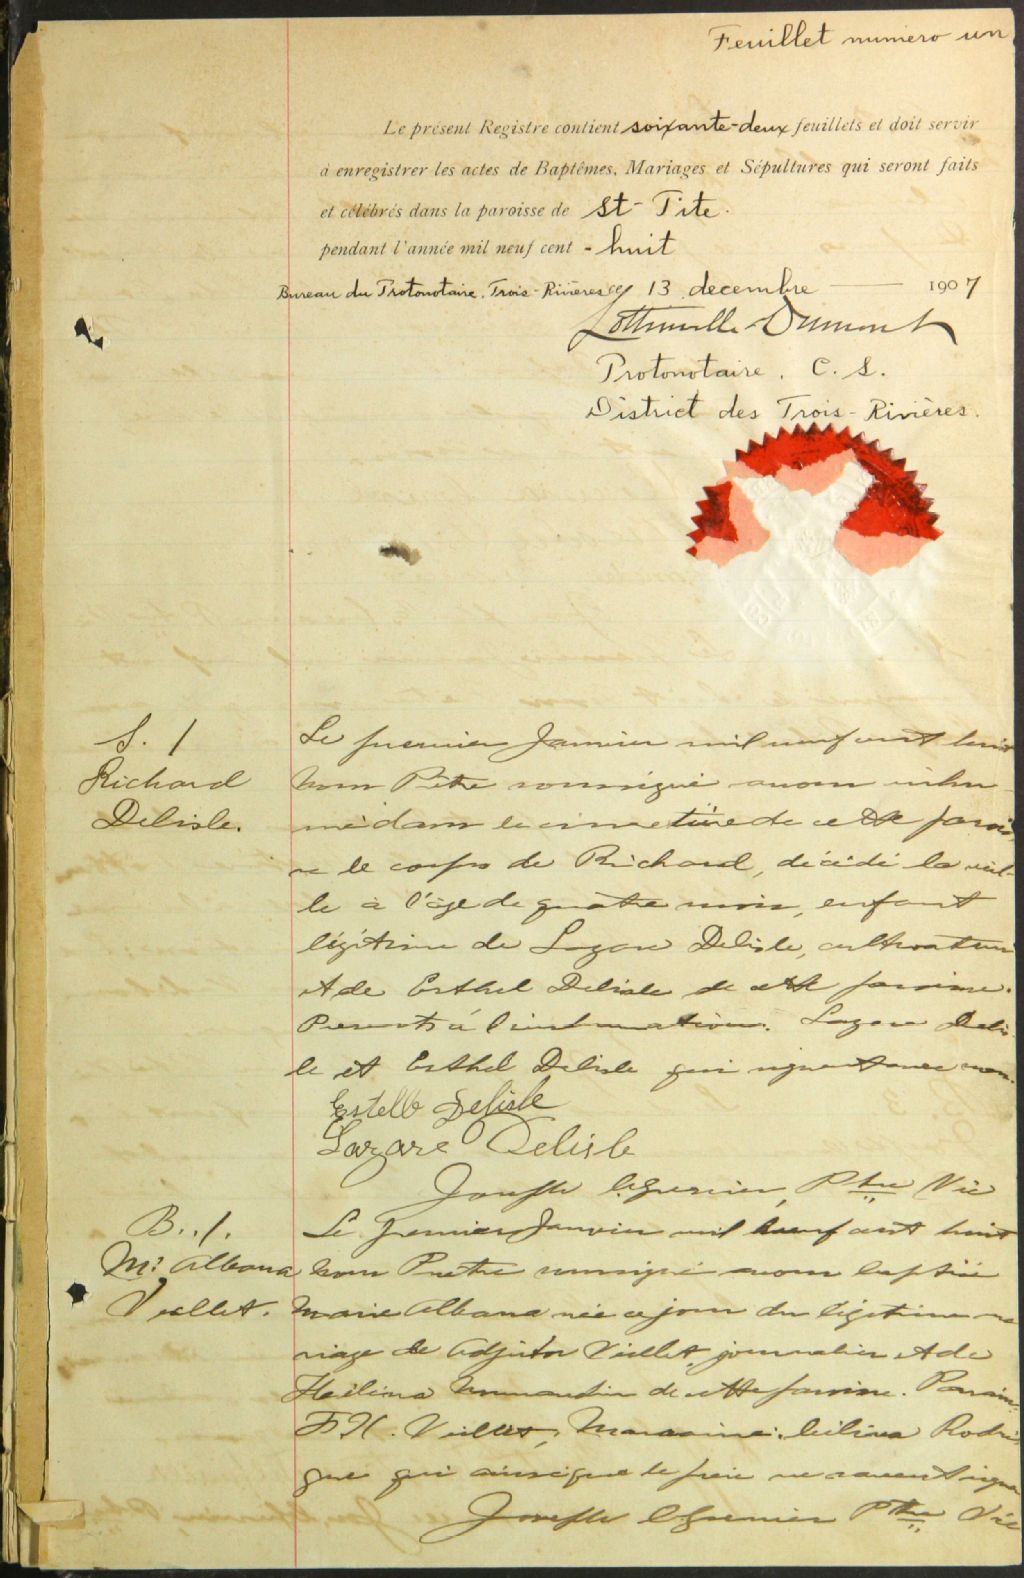 Feuillet numero un
Le présent Registre contient soixante-deux feuillets et doit servir
à enregistrer les actes de Baptêmes, Mariages et Sépultures qui seront faits
et célébrés dans la paroisse de St-Tite.
pendant l'année mil neuf cent - huit
Bureau du Protonotaire, Trois-Rivières ce 13 decembre 1907
Lottinville Dumont
Protonotaire. C. S.
District des Trois-Rivières.
S. 1
Richard
Delisle.
Le premier Janvier mil neuf cent huit
nous Prêtre soussigné avons inhu-
mé dans le cimetière de cette parois
se le corps de Richard, décédé la veil-
le à l'âge de quatre mois, enfant
légitime de Lazare Delisle, cultivateur
et de Esthel Delisle de cette paroisse.
Presents à l'inhumation. Lazare Delis
le et Esthel Delisle qui signent avec nous.
Estelle Delisle
Lazare Delisle
Joseph Grenier, Ptre Vic
B. 1.
Me Albana
Veillet.
Le premier Janvier mil neuf cent huit
nous Prêtre soussigné avons baptisé
Marie Albana née ce jour du légitime ma
riage de Adjutor Veillet, journalier et de
Normandin de cette paroisse. Parain:
F.X. Veillet, Marraine: Rodri
gue qui ainsi que le père ne savent signer
Joseph Grenier Ptre Vic